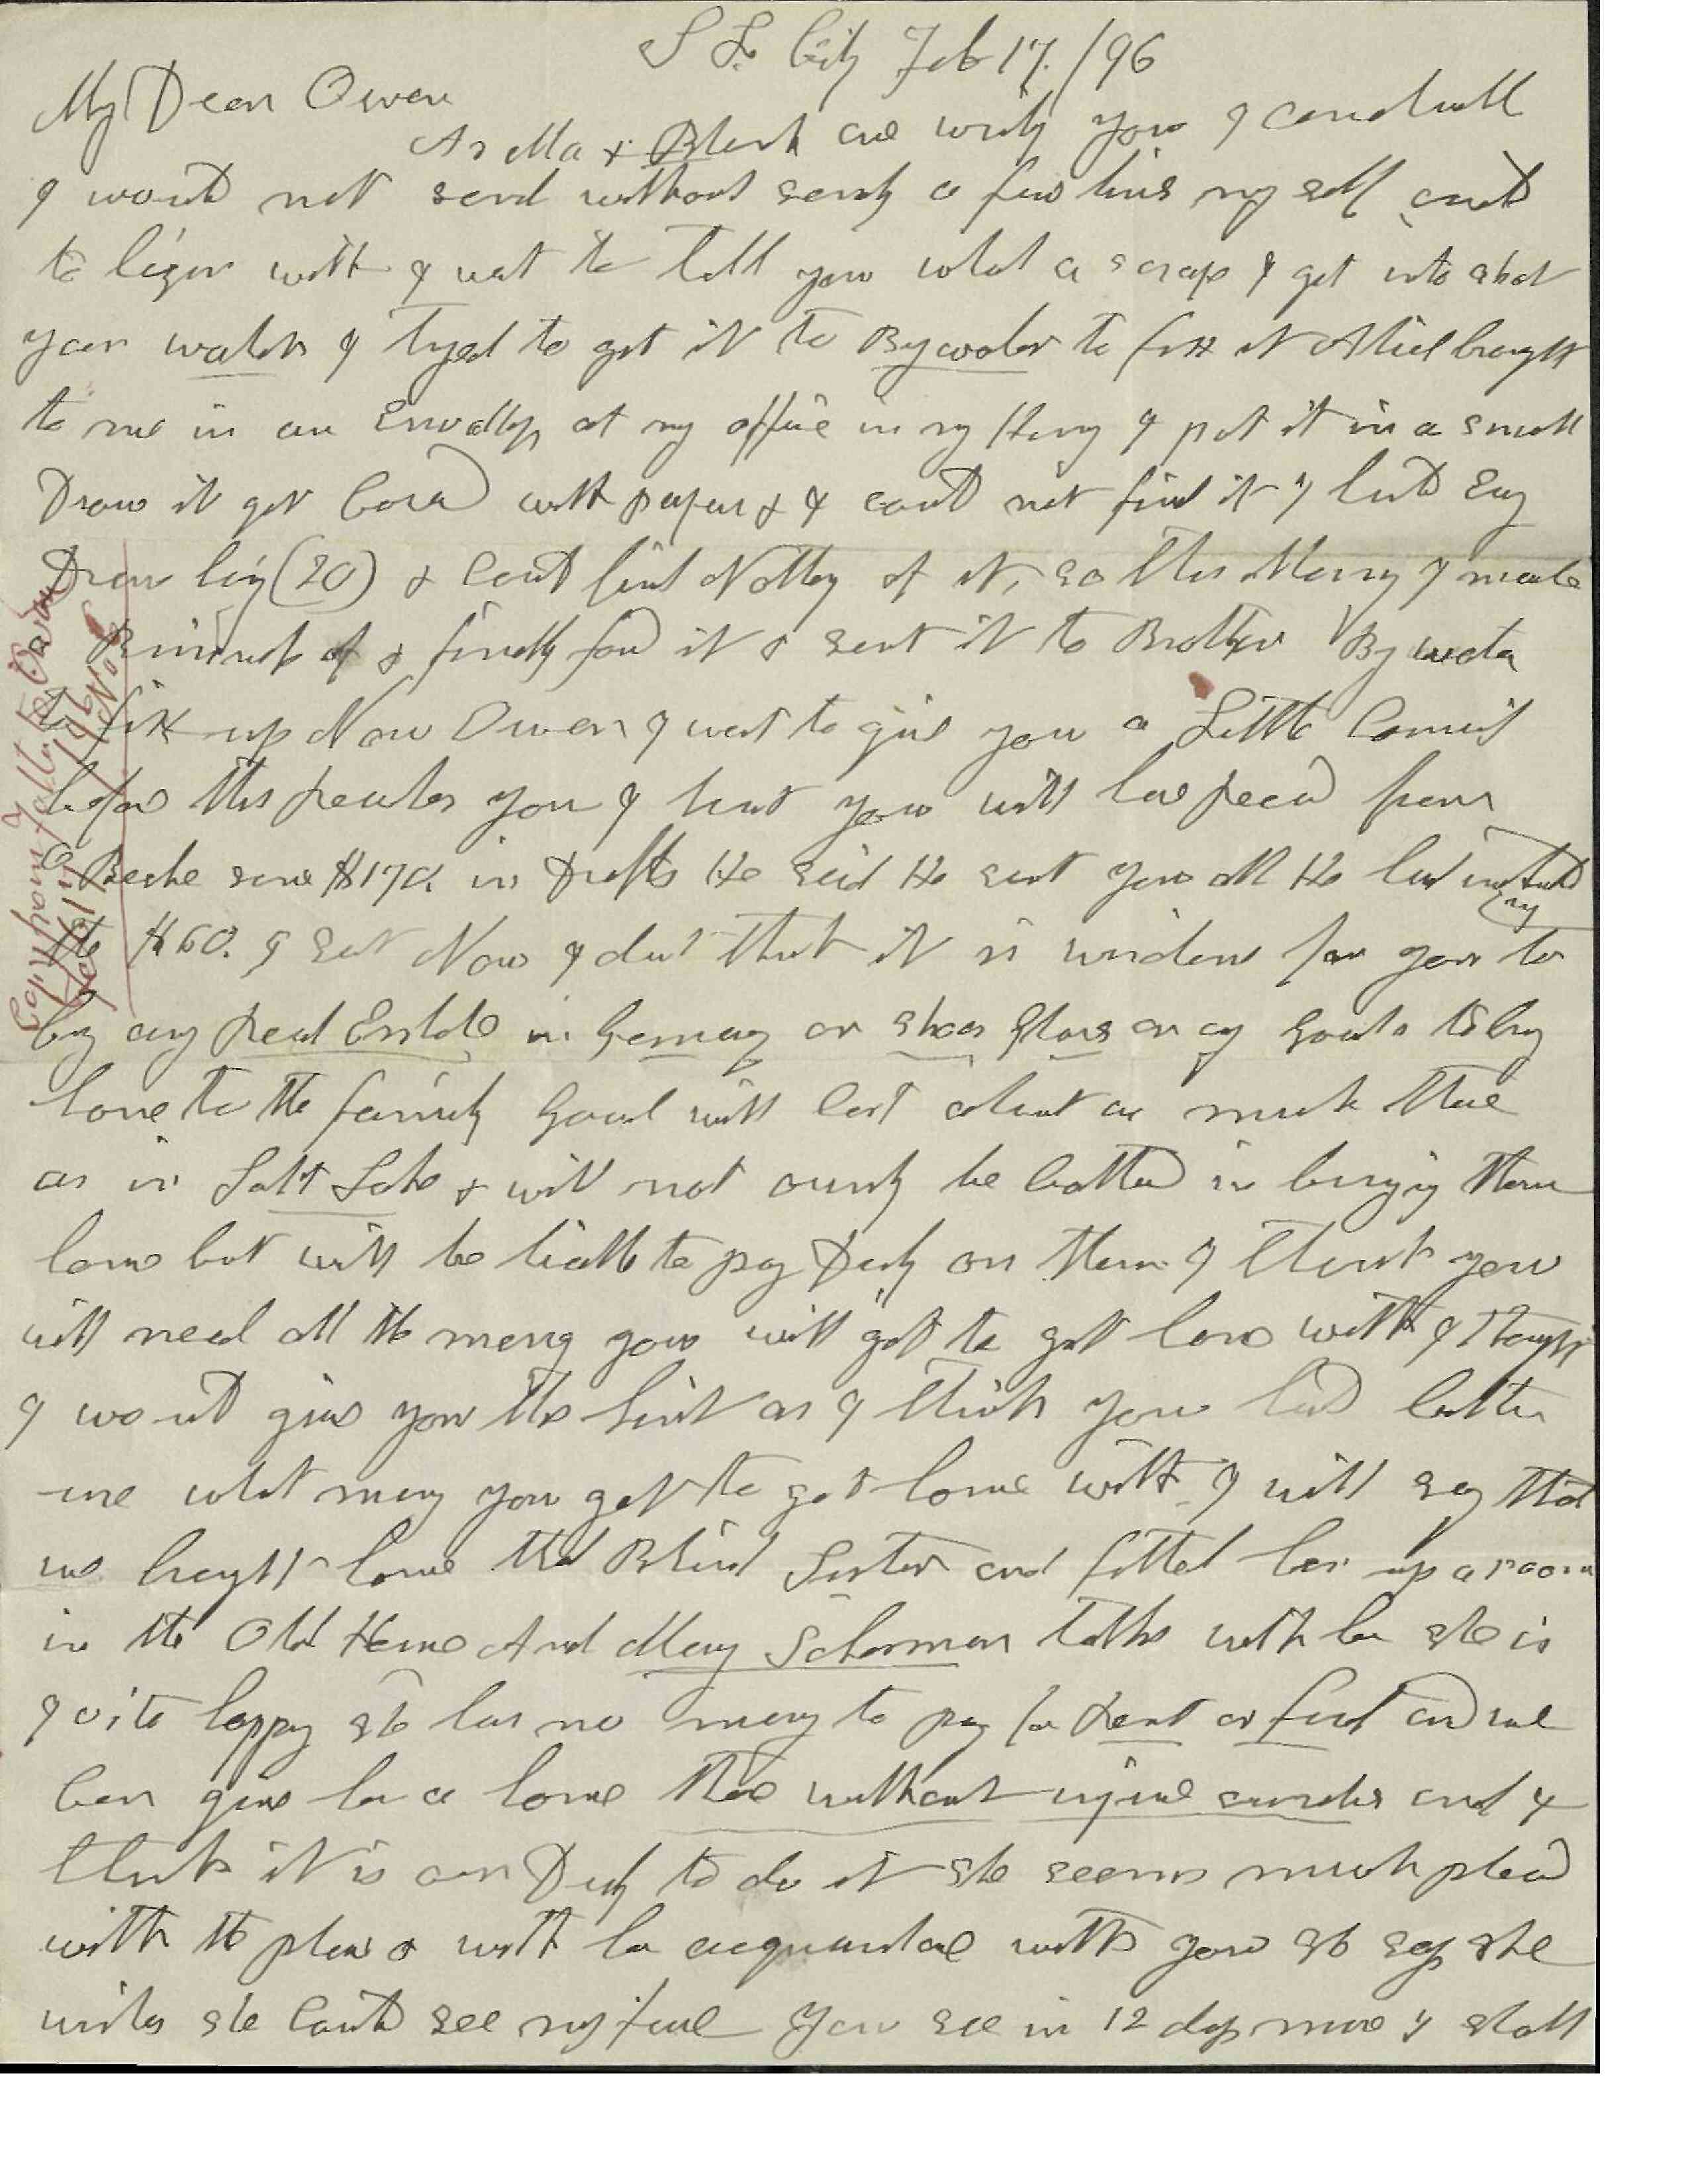 S L. City Feb 17./96
My Dear Owen
As Ma & Blanch are writing you I
I would not send without sendg a few lines my self and
to begin with I want to tell you what a scrap I got into about
your watch I tryed to get it to Bywater to fix it Abiel brought
to me in an Envellop at my office in my Hurry I put it in a small
Draw it got Coverd with papers & I could not find it I had Evry
Draw big (20) & Could find Nothing of it, so this Morng I made
a Business of & finally found it & sent it to Brother Bywater
to fix up Now Owen I want to give you a Little Council
before this reaches you I trust you will have recd from
Beebe some $170. in Drafts He said He sent you all He had instead
the $60. I sent Now I doubt that it is wisdom for you to
buy any Real Estate in Germany or Shoes Stores or any Goods to bring
home to the family Goods will cost about as much there
as in Salt Lake & will not ounly be botherd in bringing them
home but will be liable to pay Duty on them I think you
will need all the money you will get to get home with I thought
I would give you this hint as I think you had better
use what money you get to get home with I will say that
we brought home the Blind Sister and fitted her up a room
in the Old Home And Mary Scharman talks with her she is
quite happy she has no money to pay for Rent or food and we
Can give her a home there without injuring ourselves and I
think it is our Duty to do it she seems much pleased
with the plan & with her acquaintance with you she says she
wishes she Could see my face You see in 12 days more I shall
Copy from father to Owen
Feb 17/96
No 2